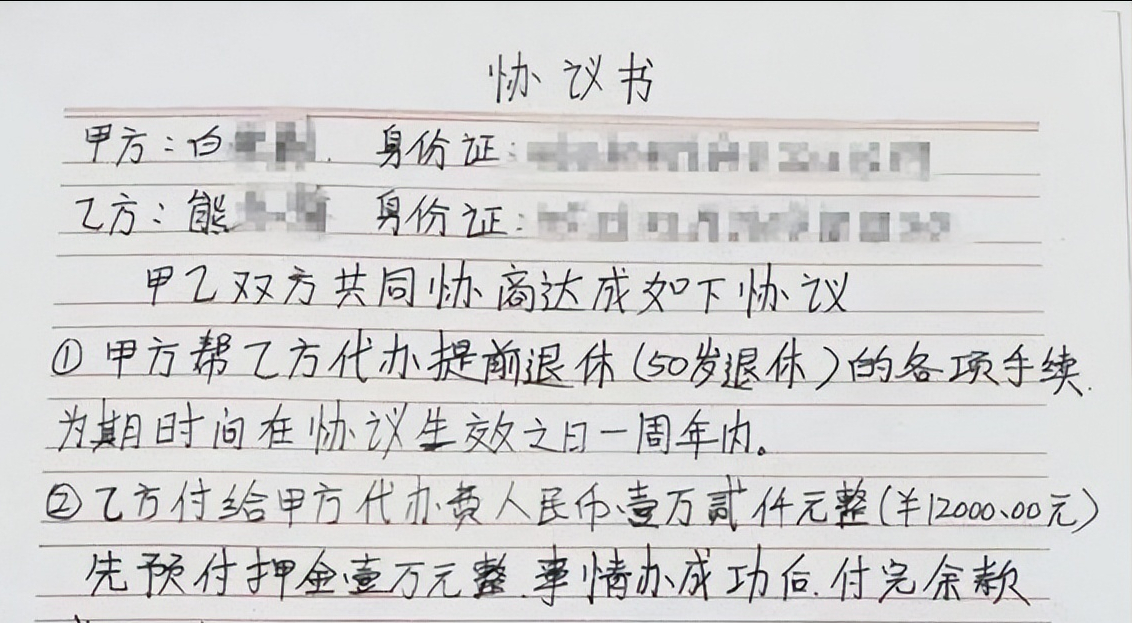 协议书
甲方：白 身份证：
乙方：熊 身份证：
甲乙双方共同协商达成如下协议
①甲方帮乙方代办提前退休(50岁退休)的各项手续.
为期时间在协议生效之日一周年内。
②乙方付给甲方代办费人民币壹万贰仟元整(￥12000.00元)
先预付押金壹万元整.事情办成功后.付完余款